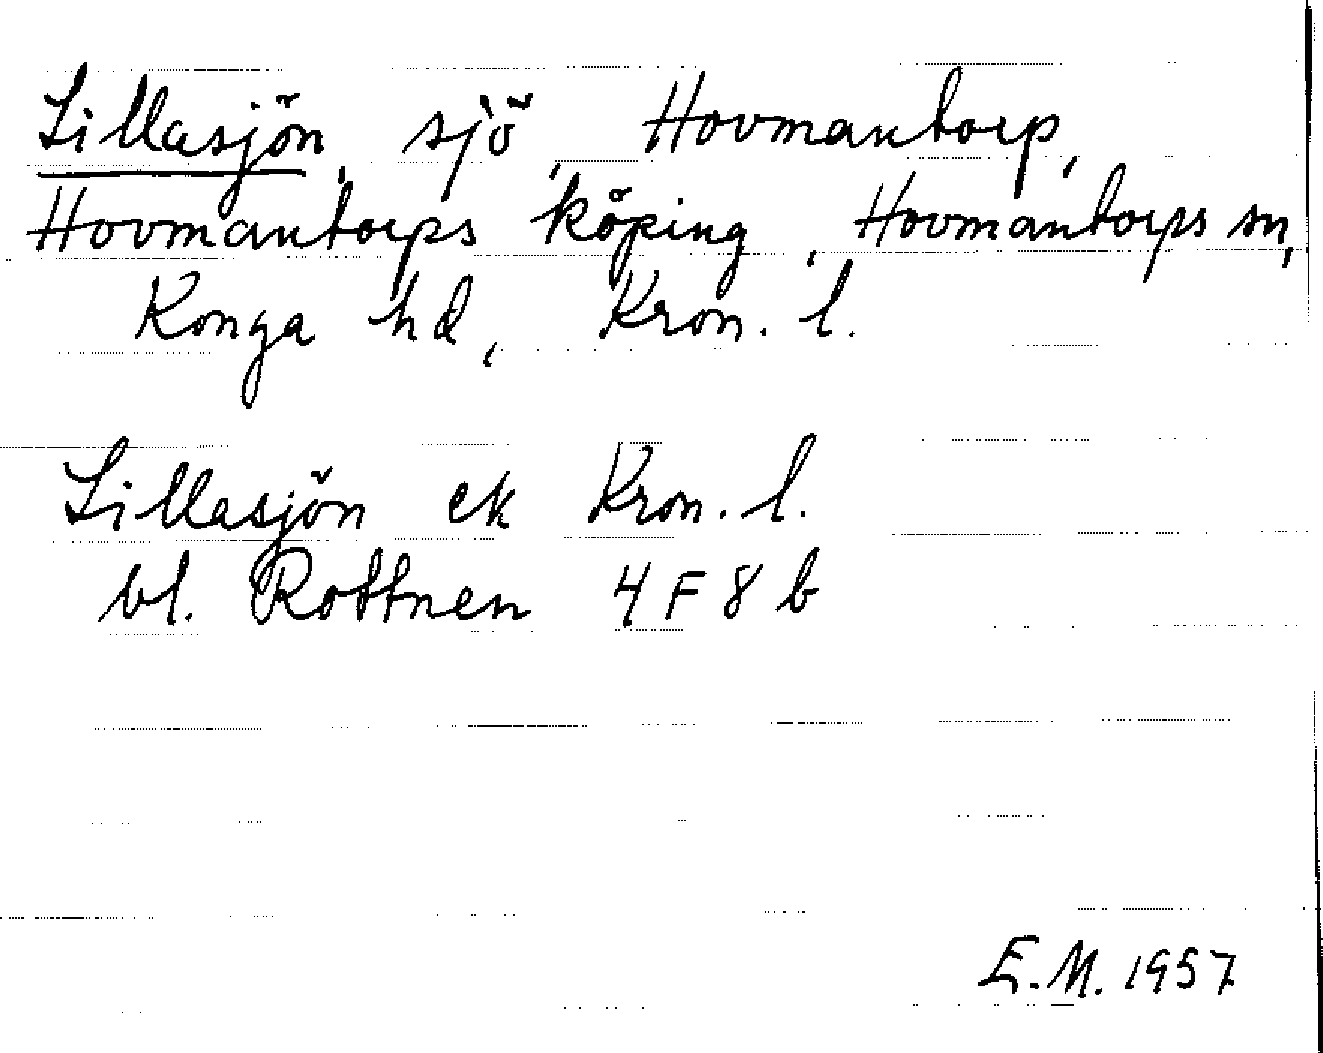 Lillasjön, sjö, Hovmantorp,
Hovmantorps köping, Hovmantorps sn,
Konga hd, Kron. l.
Lillasjön ek Kron. l.
bl. Rottnen 4 F 8 b
E. M. 1957